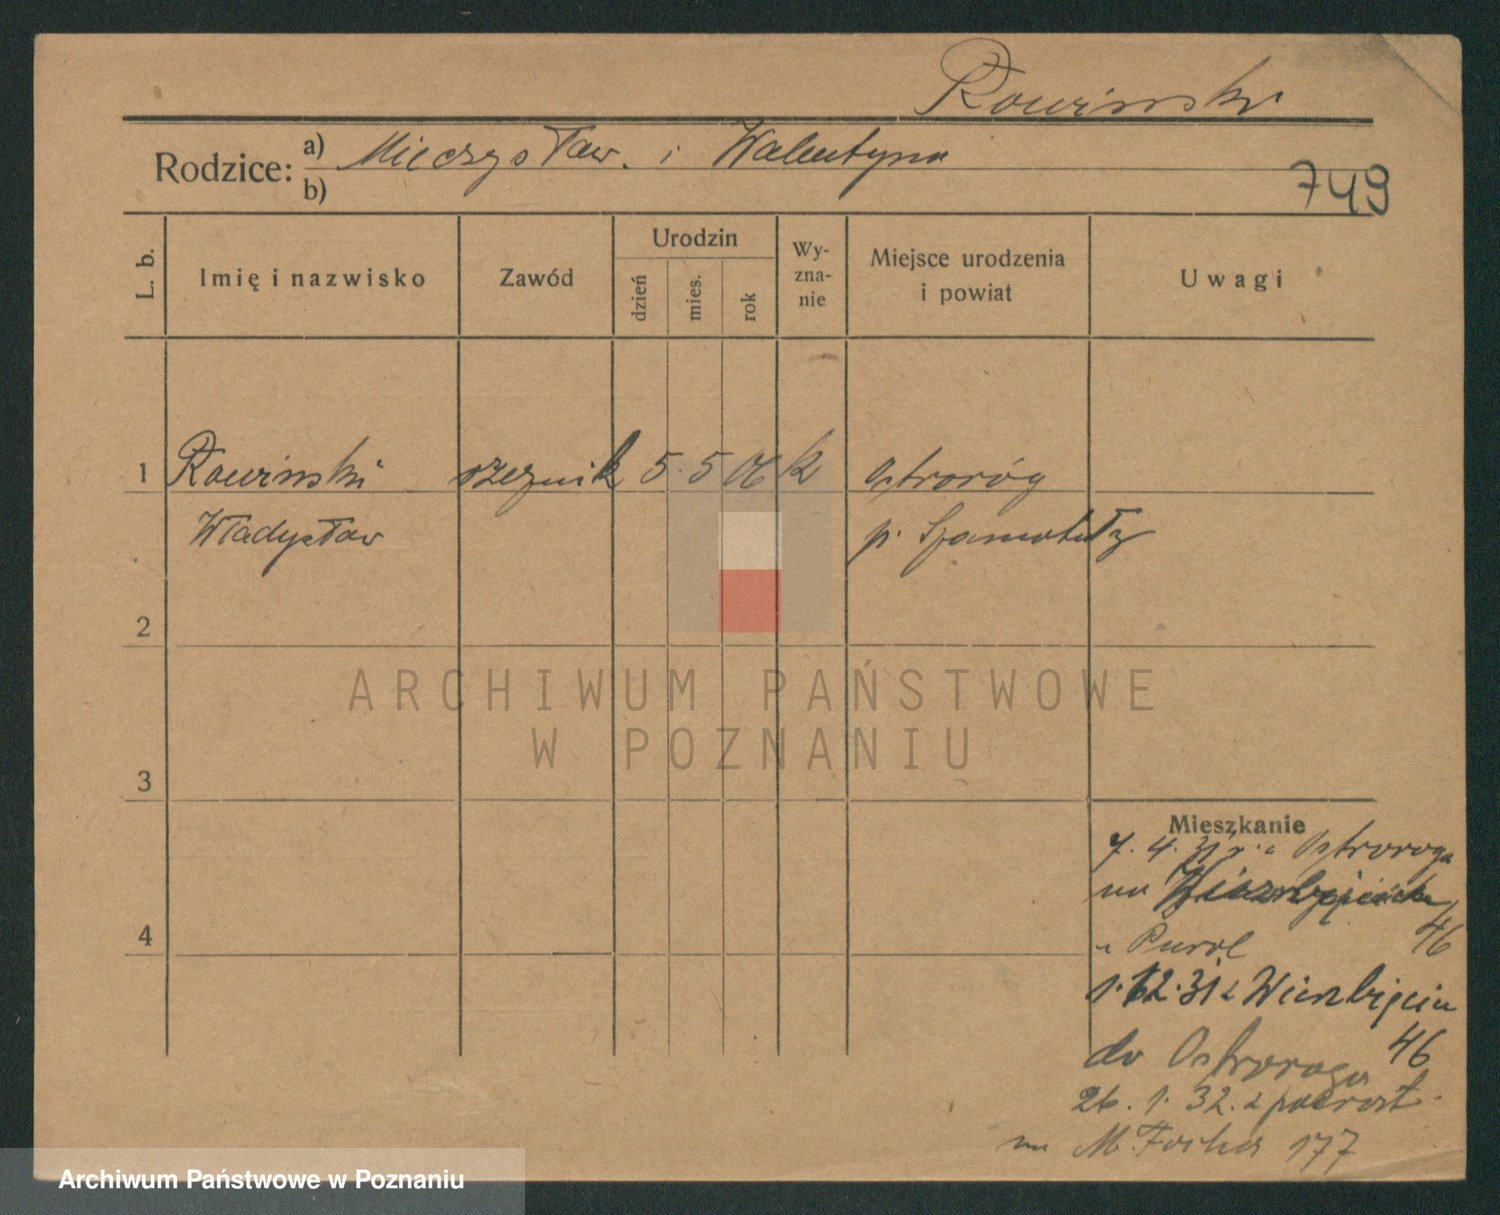 Rowiński
Rodzice: a) Mieczysław. i Walentyna
b)
749
L. b.
Imię i nazwisko
Zawód
Urodzin
dzień
mies.
rok
Wy-
zna-
nie
Miejsce urodzenia
i powiat
Uwagi
1 Rowiński rzeznik 5. 5 06 k Ostroróg
Władysław p. Szamotuły
2
ARCHIWUM PAŃSTWOWE
W POZNANIU
3
Mieszkanie
7. 4. 31 r. z Ostroroga
na Wierzbięcice
46
u Purol
4
1.12.31 z Wierzbięcin
46
do Ostroroga
26. 1. 32. z powrot
na M. Focha 177
Archiwum Państwowe w Poznaniu